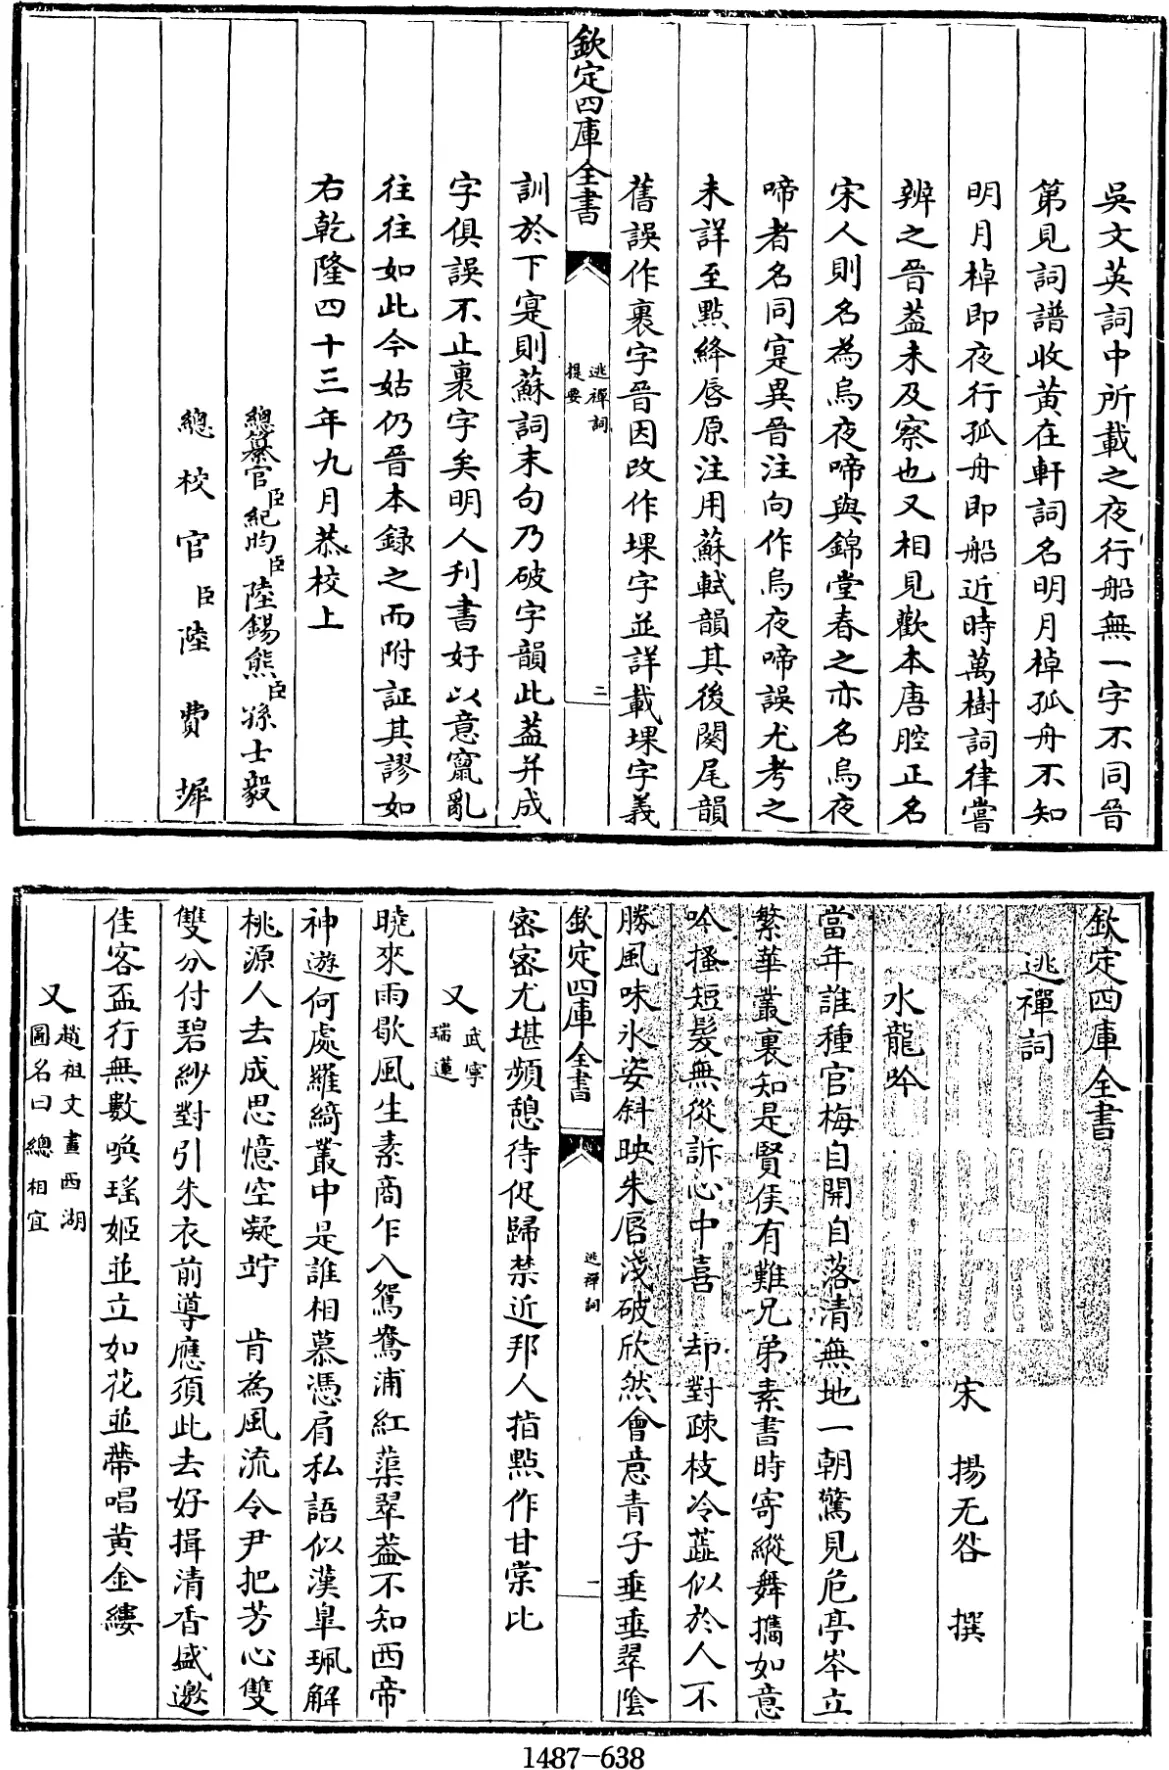 吳文英詞中所載之夜行船無一字不同晉
第見詞譜收黃在軒詞名明月棹孤舟不知
明月棹即夜行孤舟即船近時萬樹詞律嘗
辨之晉葢未及察也又相見歡本唐腔正名
宋人則名為烏夜啼與錦堂春之亦名烏夜
啼者名同寔異晉注向作烏夜啼誤尤考之
未詳至點絳唇原注用蘇軾韻其後闋尾韻
舊誤作裏字晉因改作堁字並詳載堁字義
欽定四庫全書
逃禪詞
提要
二
訓於下寔則蘇詞末句乃破字韻此葢并成
字俱誤不止裏字矣明人刋書好以意竄亂
往往如此今姑仍晉本錄之而附証其謬如
右乾隆四十三年九月恭校上
總纂官臣紀昀臣陸錫熊臣孫士毅
總校官臣陸費墀
欽定四庫全書
逃禪詞
宋 揚无咎 撰
水龍吟
當年誰種官梅自開自落清無地一朝驚見危亭岑立
繁華叢裏知是賢侯有難兄弟素書時寄縱舞攜如意
吟搔短髮無從訴心中喜 却對疎枝冷蘂似於人不
勝風味氷姿斜映朱唇淺破欣然會意青子垂垂翠陰
欽定四庫全書
逃禪詞
一
密密尤堪頻憩待促歸禁近邦人指點作甘棠比
又 武寧
瑞蓮
曉來雨歇風生素商乍入鴛鴦浦紅蕖翠葢不知西帝
神遊何處羅綺叢中是誰相慕憑肩私語似漢臯珮解
桃源人去成思憶空凝竚 肯為風流令尹把芳心雙
雙分付碧紗對引朱衣前導應須此去好揖清香盛邀
佳客盃行無數喚瑤姬並立如花並蔕唱黃金縷
又 趙祖文畫西湖
圖名曰總相宜
1487-638